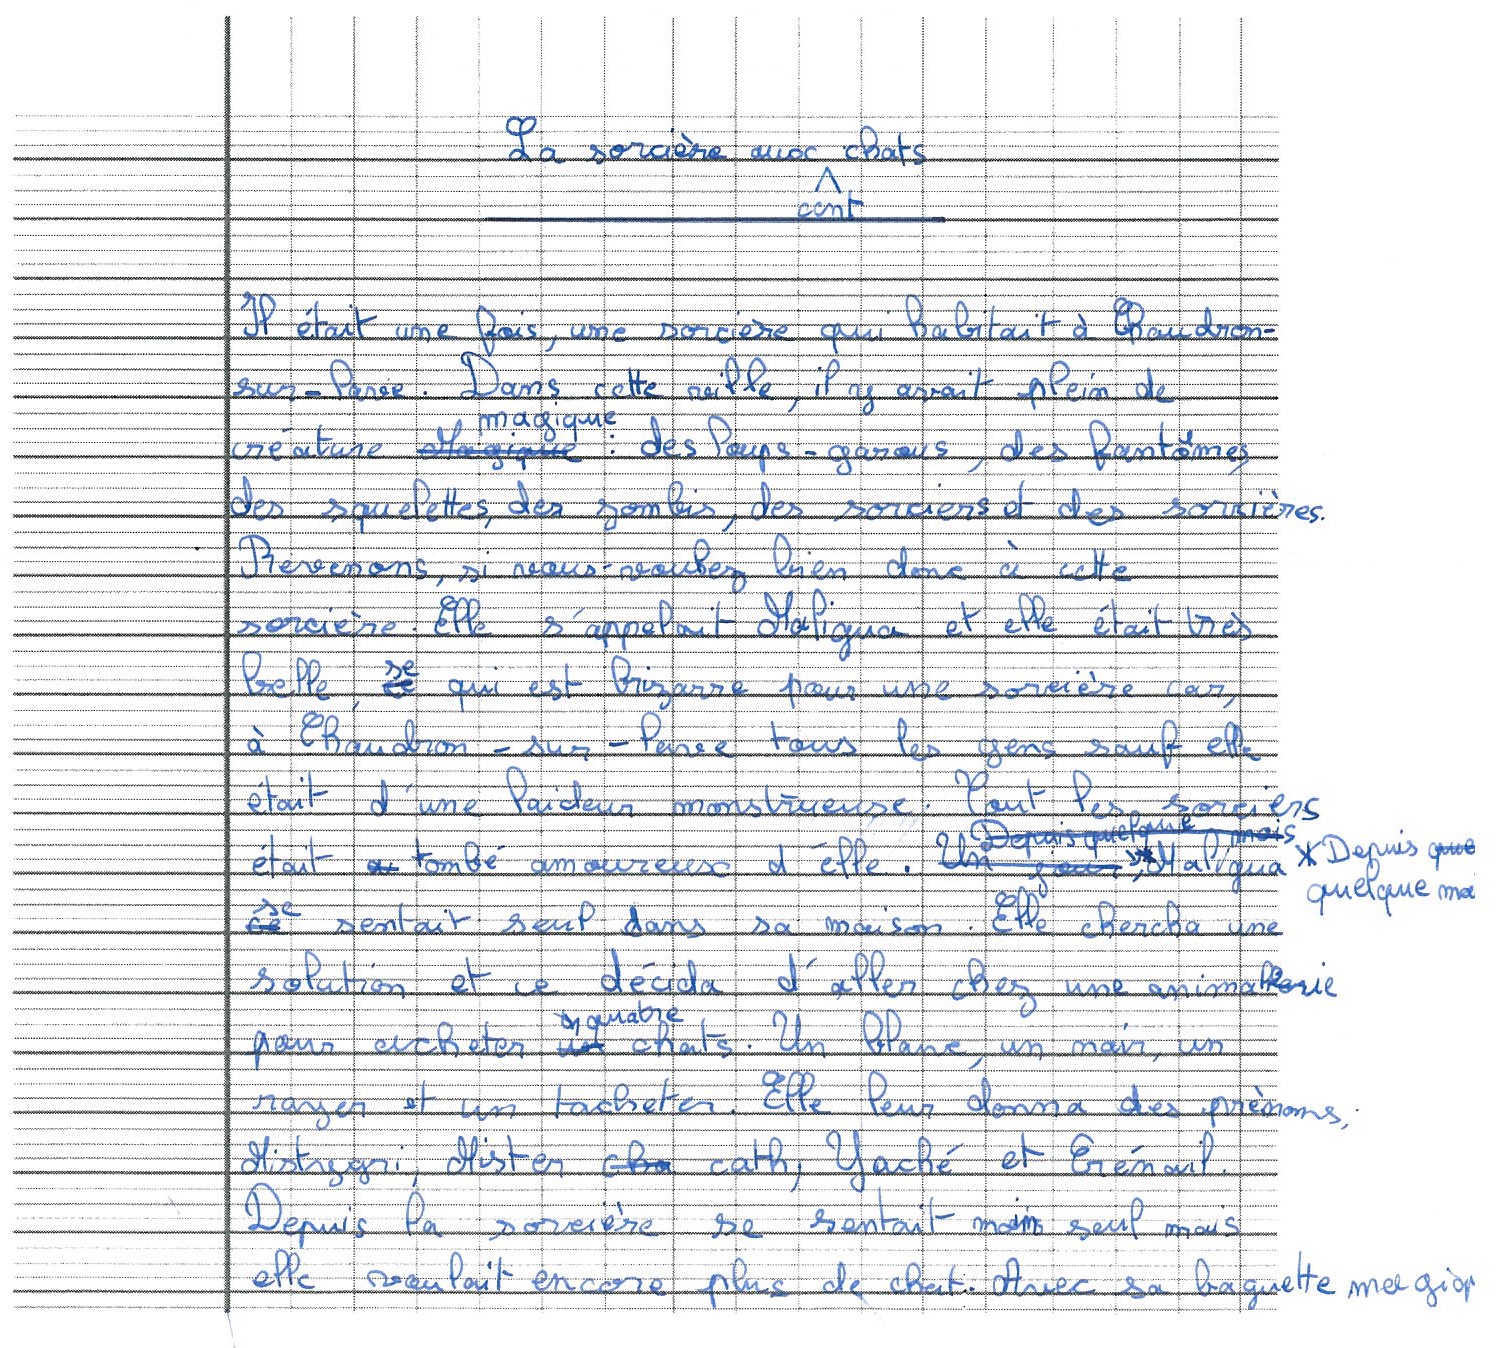 La sorcière aux cent chats
Il était une fois, une sorcière qui habitait à Chaudron-
sur-Parée. Dans cette ville, il y avait plein de
créature magique : des loups-garous, des fantômes,
des squelettes, des zombis, des sorciers et des sorcières.
Revenons, si vous-voulez bien donc à cette
sorcière. Elle s'appelait Maligua et elle était très
belle, se qui est bizarre pour une sorcière car,
à Chaudron-sur-Parée tous les gens sauf elle
était d'une laideur monstrueuse. Tout les sorciers
était tombé amoureux d'elle. * Maligua * Depuis
quelque
se sentait seul dans sa maison. Elle chercha une
solution et ce décida d'aller chez une animalerie
pour acheter quatre chats. Un blanc, un noir, un
rayer et un tacheter. Elle leur donna des prènoms,
Mistrygri, Mister cath, Yaché et Crénail.
Depuis la sorcière se sentait moin seul mais
elle voulait encore plus de chat. Avec sa baguette